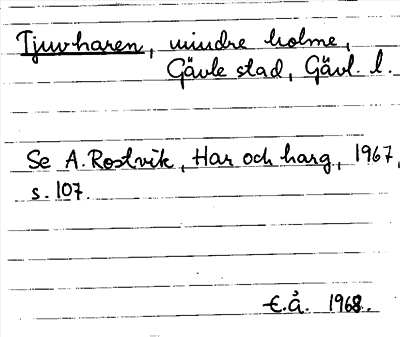 Tjuvharen, mindre holme,
Gävle stad, Gävl. l.
Se A. Rostvik, Har och harg, 1967,
s. 107.
E.Å. 1968.